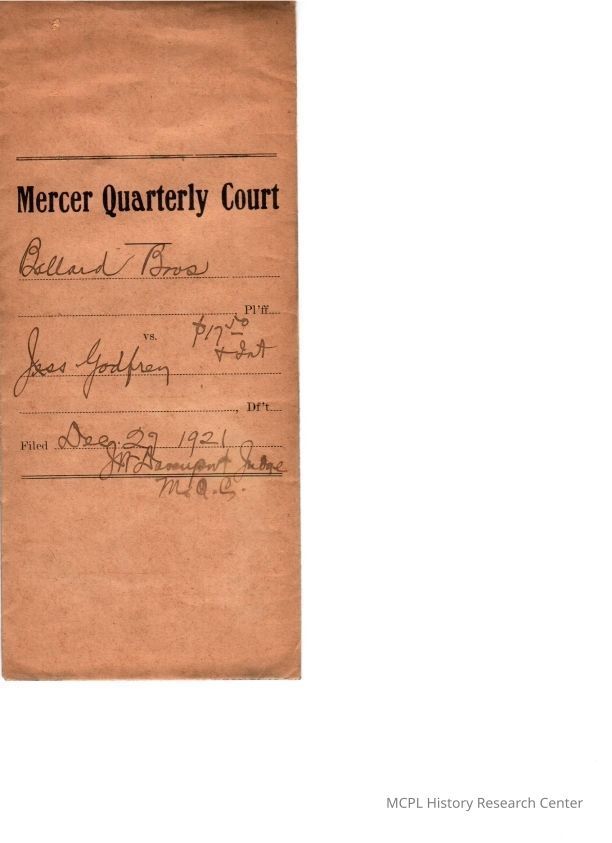 Mercer Quarterly Court
Ballard Bros
Pl'ff.
vs. $17.50
+ Int
Jess Godfrey
, Df't.
Filed Dec. 29 1921
Davenport Judge
M.Q.C.
MCPL History Research Center